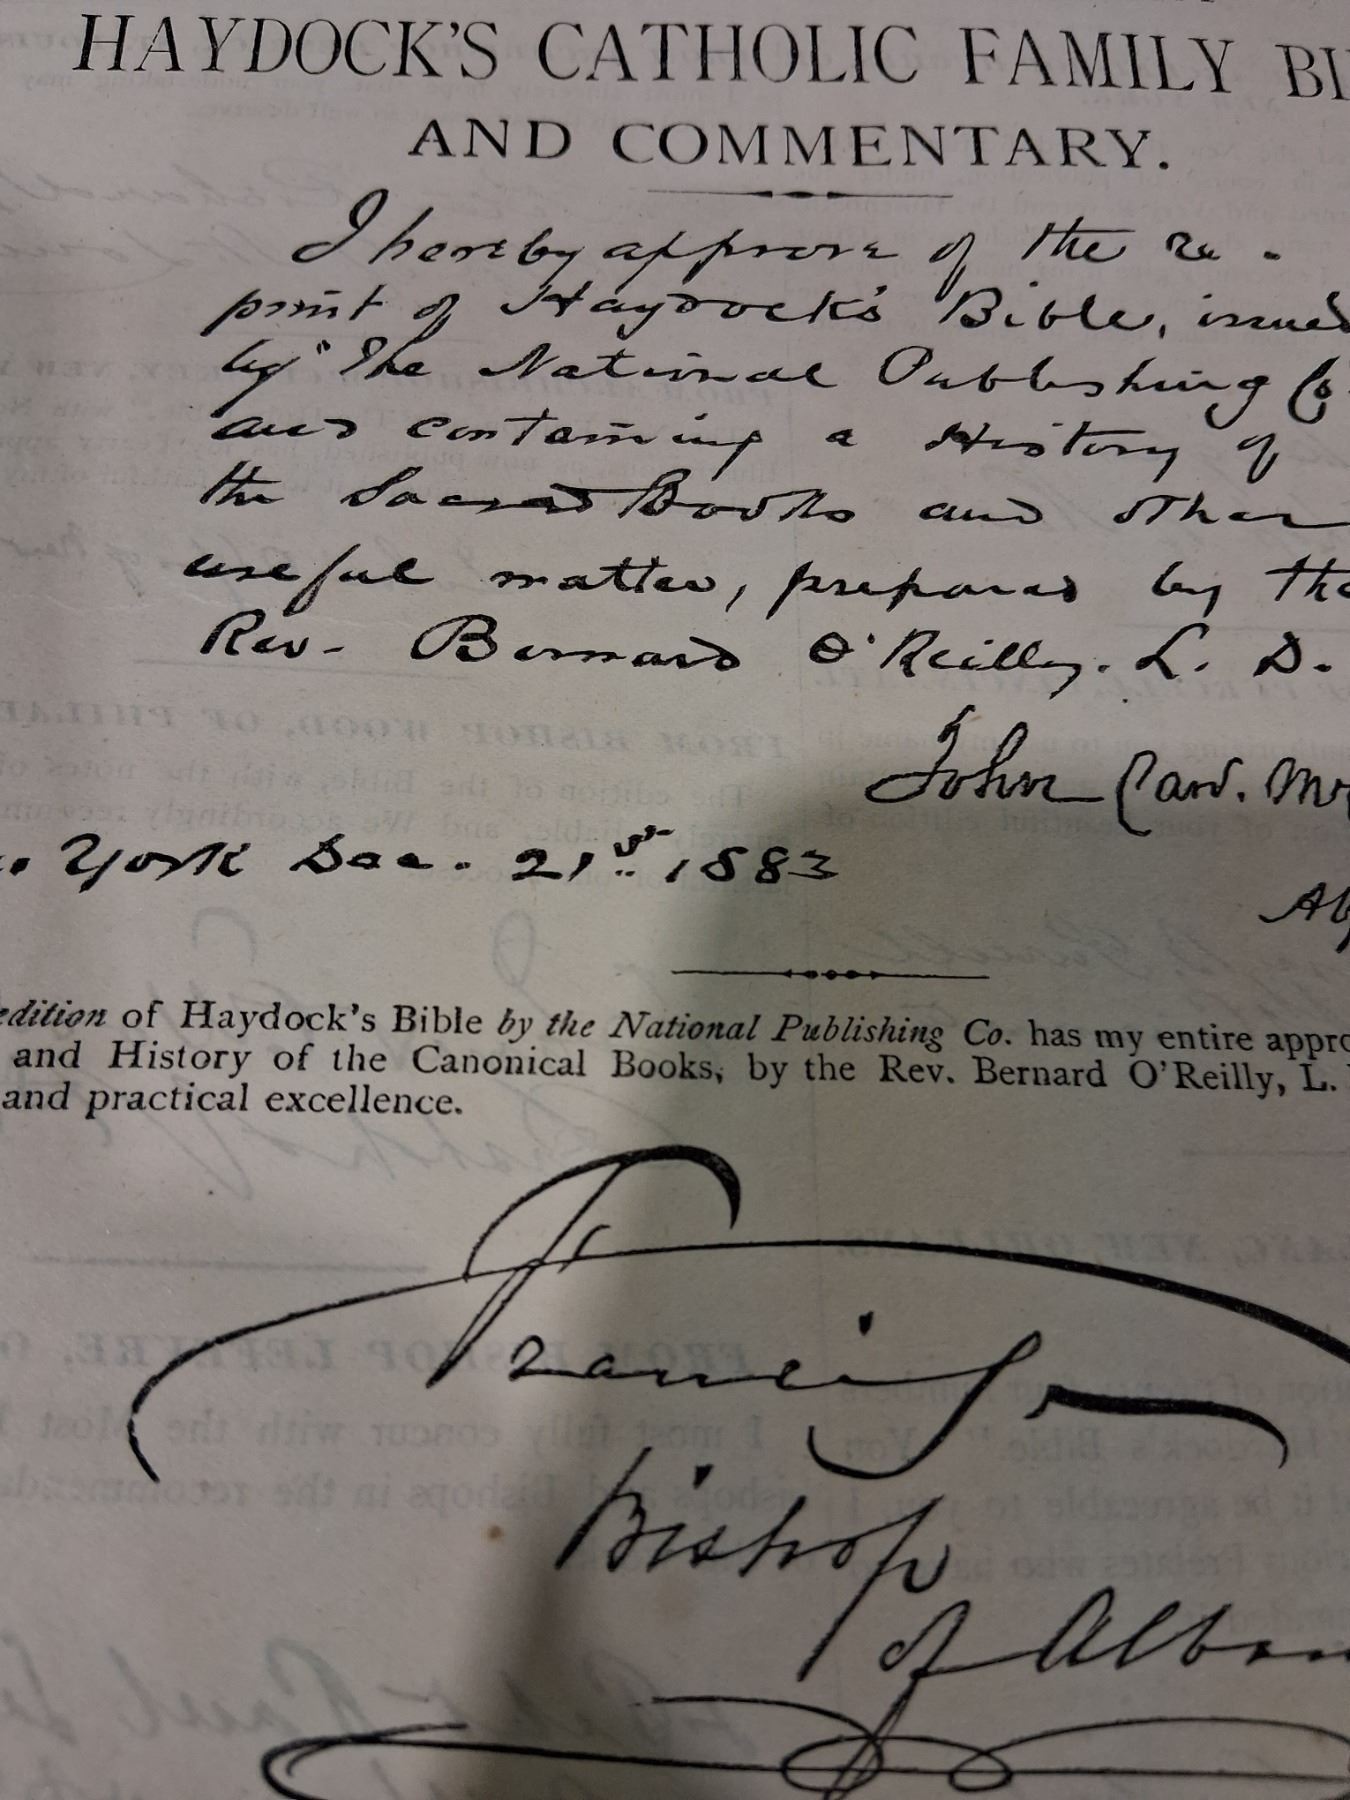 HAYDOCK'S CATHOLIC FAMILY BI
AND COMMENTARY.
I hereby approve of the re-
print of Haydock's Bible, issued
by "The National Publishing Co.
and containing a History of
the Sacred Books and other
useful matter, prepared by the
Rev. Bernard O'Reilly. L. D.
John Card. Mc
York Dec. 21st 1883
edition of Haydock's Bible by the National Publishing Co. has my entire appro
and History of the Canonical Books, by the Rev. Bernard O'Reilly, L.
and practical excellence.
Francis
Bishop
of Alban